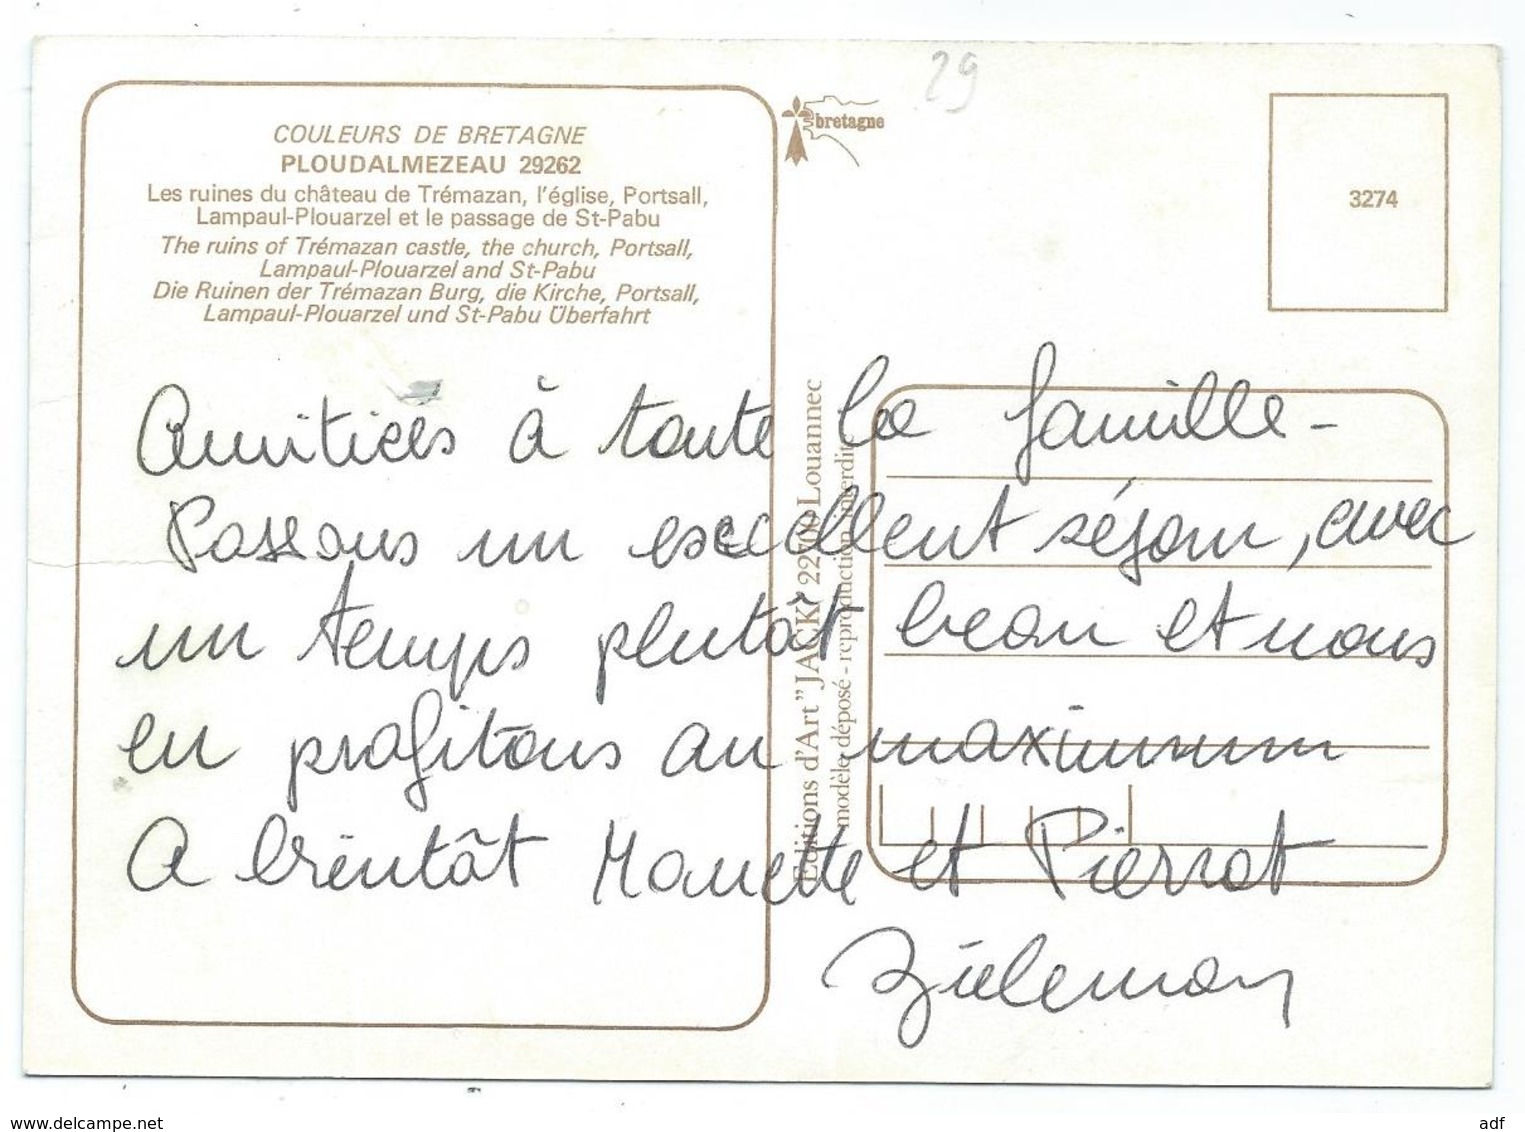 29
COULEURS DE BRETAGNE
PLOUDALMEZEAU 29262
Les ruines du château de Trémazan, l'église, Portsall,
Lampaul-Plouarzel et le passage de St-Pabu
The ruins of Trémazan castle, the church, Portsall,
Lampaul-Plouarzel and St-Pabu
Die Ruinen der Trémazan Burg, die Kirche, Portsall,
Lampaul-Plouarzel und St-Pabu Überfahrt
bretagne
3274
Editions d'Art "JACK" 22700 Louannec
modèle déposé - reproduction interdite
Amitiés à toute la famille -
Passons un excellent séjour, avec
un temps plutôt beau et nous
en profitons au maximum
A bientôt Monette et Pierrot
delcampe.net
adf